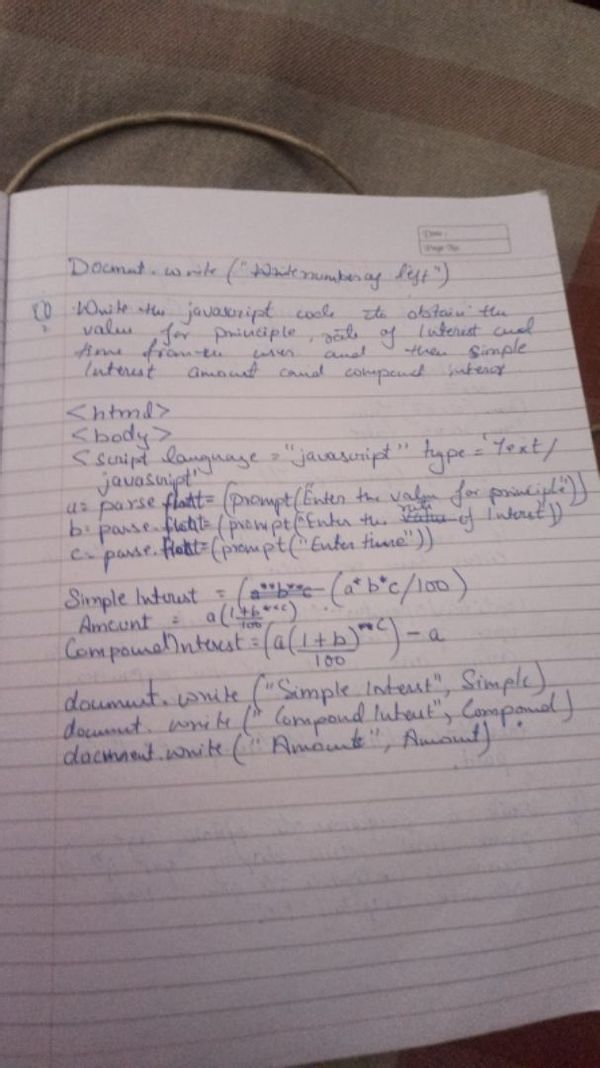 Date:
Page No.
Documt.write ("Write number of left")
Q Write the javascript code to obtain the
value for principle, rate of Interest and
time from the user and then simple
Interest amount and compound interest
<html>
<body>
<script language = "javascript" type = "Text/
javascript"
a= parse float= (prompt("Enter the value for principle"))
b= parse.float= (prompt("Enter the rate of Interest"))
c= parse.float= (prompt("Enter time"))
Simple Interest = (a*b*c/100)
Amount = a(1+b/100 **c)
Compound Interest = (a(1+b/100)**c) - a
document.write ("Simple Interest", Simple)
document.write ("Compound Interest", Compound)
document.write ("Amount", Amount)